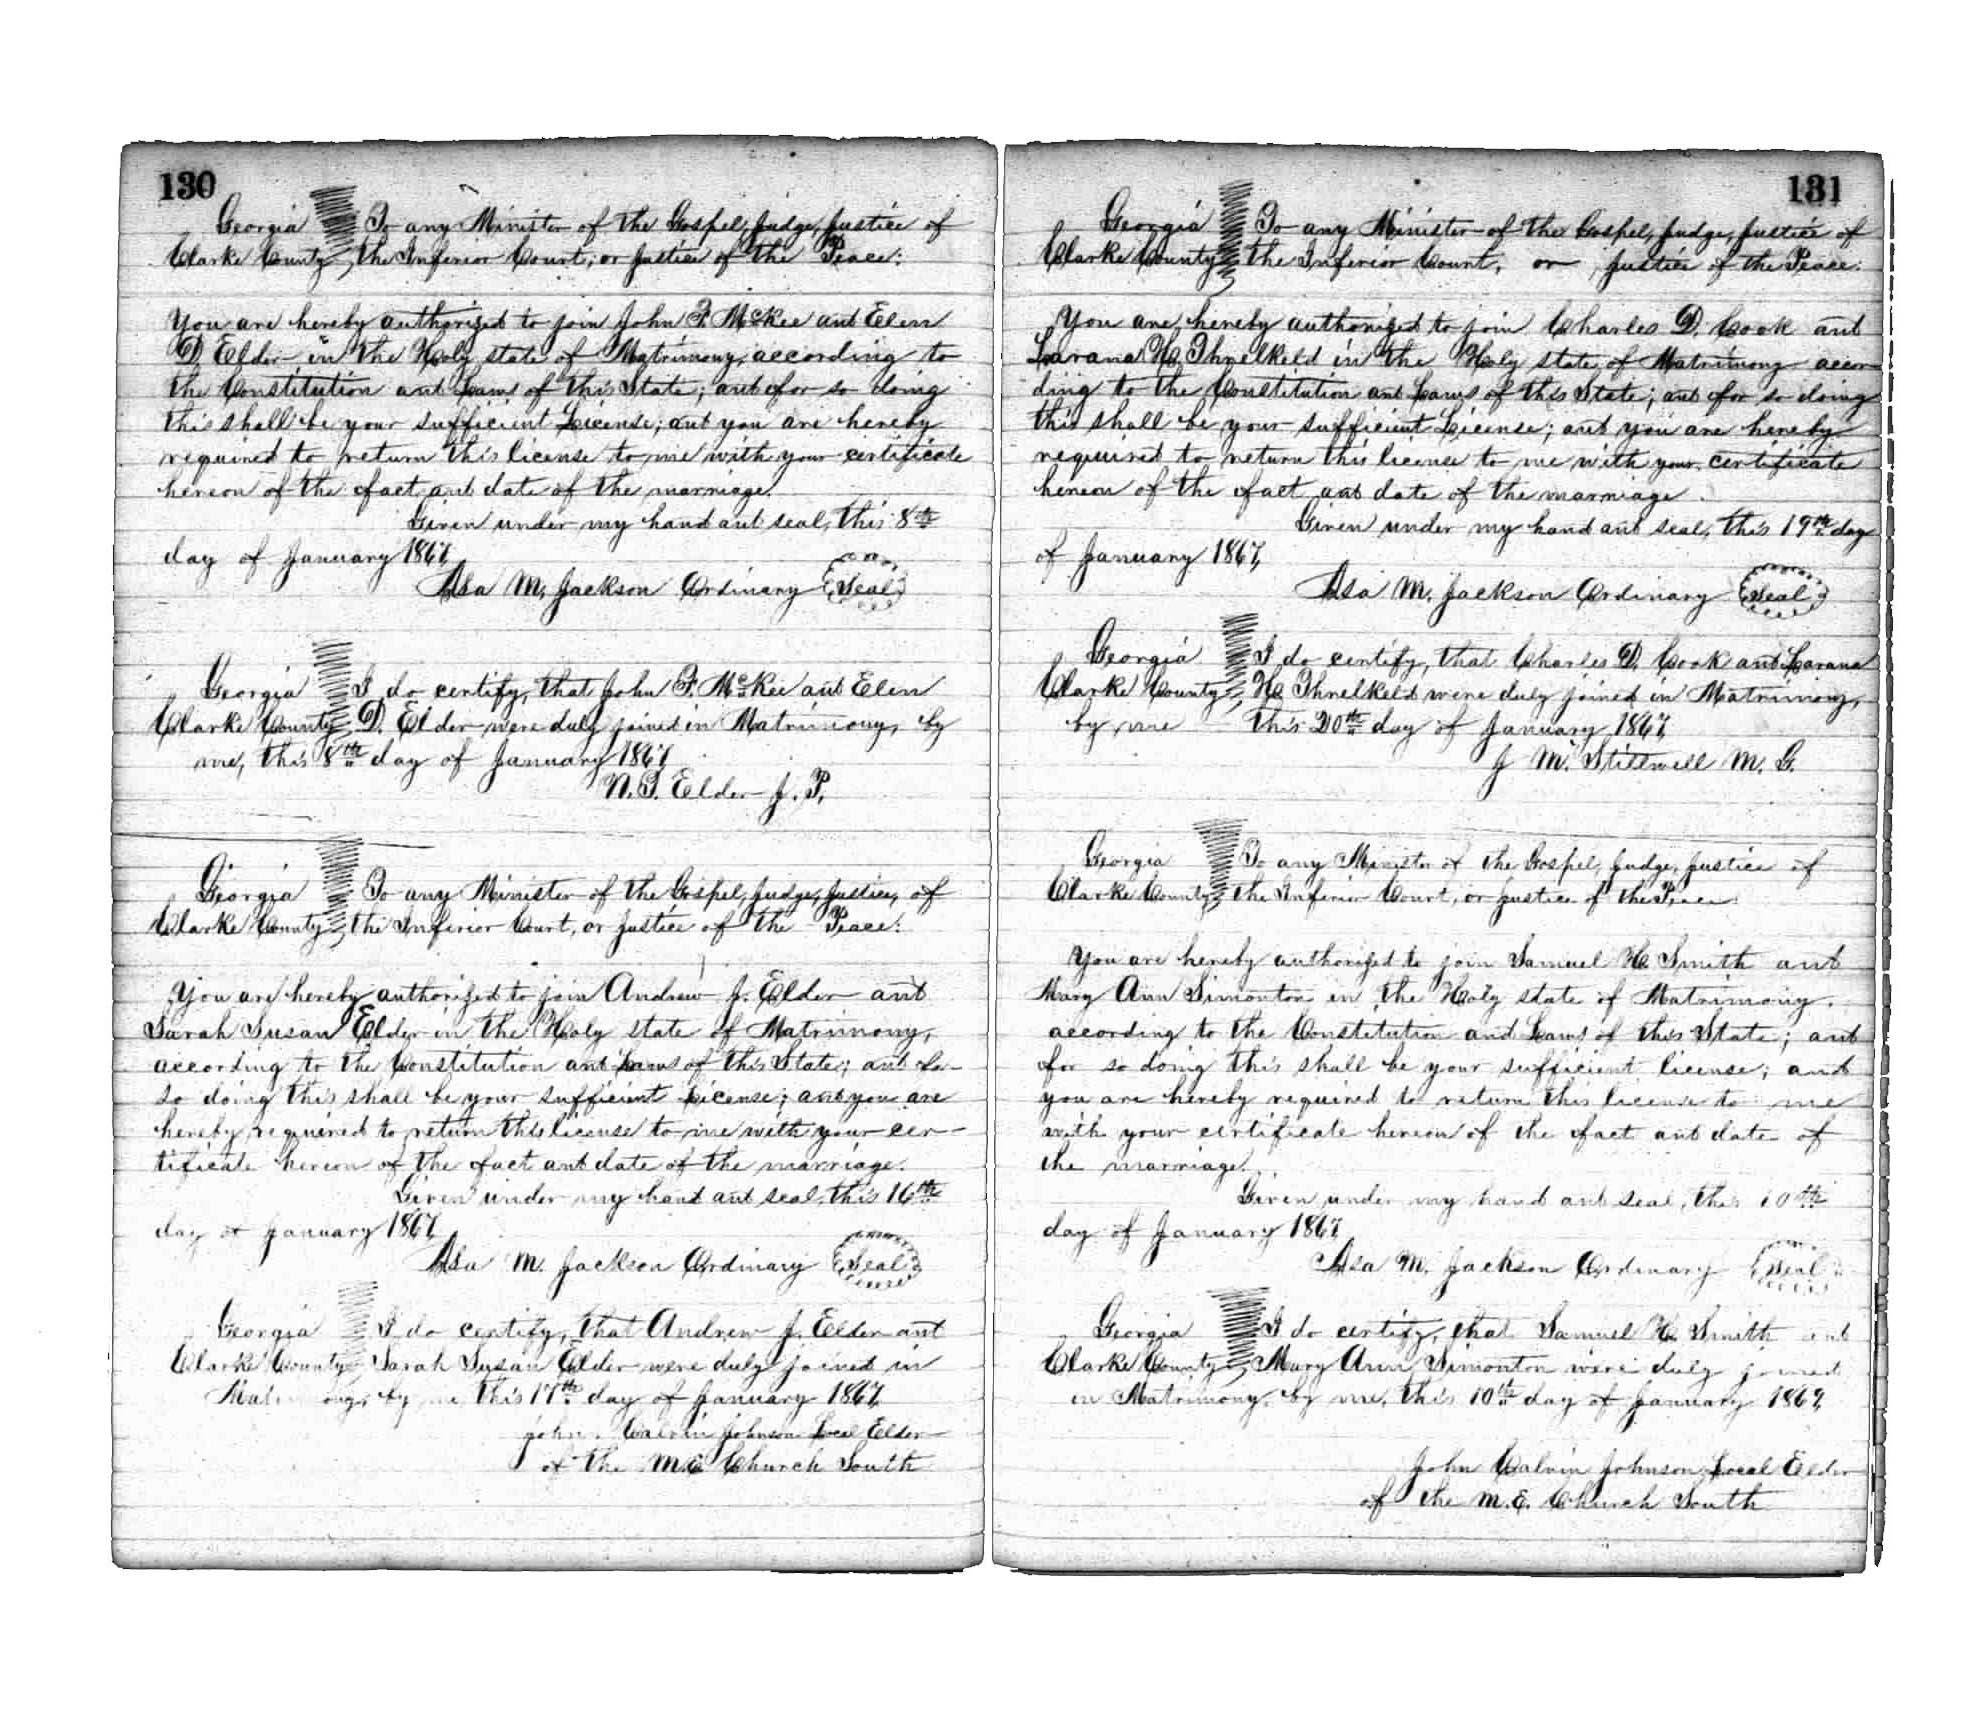 130
Georgia To any Minister of the Gospel, Judge, Justice of
Clarke County, the Inferior Court, or Justice of the Peace:
You are hereby authorized to join John F. McKee and Elen
D. Elder in the Holy state of Matrimony, according to
the Constitution and Laws of this State; and for so doing
this shall be your sufficient License; and you are hereby
required to return this license to me with your certificate
hereon of the fact and date of the marriage.
Given under my hand and seal, this 8th
day of January 1867,
Asa M. Jackson Ordinary Seal
Georgia I do certify, that John F. McKee and Elen
Clarke County, D. Elder were duly joined in Matrimony, by
me, this 8th day of January 1867
N. P. Elder J. P.
Georgia To any Minister of the Gospel, Judge, Justice, of
Clarke County, the Inferior Court, or Justice of the Peace:
You are hereby authorized to join Andrew J. Elder and
Sarah Susan Elder in the Holy state of Matrimony,
according to the Constitution and Laws of this State; and for
so doing this shall be your sufficient License; and you are
hereby required to return this license to me with your cer-
tificate hereon of the fact and date of the marriage.
Given under my hand and seal, this 16th
day of January 1867,
Asa M. Jackson Ordinary Seal
Georgia I do certify, that Andrew J. Elder and
Clarke County, Sarah Susan Elder were duly joined in
Matrimony, by me this 17th day of January 1867,
John Calvin Johnson Local Elder
of the M.E. Church South
131
Georgia To any Minister of the Gospel, Judge, Justice of
Clarke County, the Inferior Court, or Justice of the Peace:
You are, hereby authorized to join Charles D. Cook and
Larana H. Threlkeld in the Holy state of Matrimony accor
ding to the Constitution and Laws of this State; and for so doing
this shall be your sufficient License; and you are hereby
required to return this license to me with your certificate
hereon of the fact and date of the marriage.
Given under my hand and seal, this 19th day
of January 1867,
Asa M. Jackson Ordinary Seal
Georgia I do certify, that Charles D. Cook and Larana
Clarke County, H. Threlkeld were duly joined in Matrimony,
by me this 20th day of January 1867,
J M. Stillwell M. G.
Georgia To any Minister of the Gospel, Judge, Justice of
Clarke County, the Inferior Court, or Justice of the Peace
You are hereby authorized to join Samuel H. Smith and
Mary Ann Simonton in the Holy state of Matrimony.
according to the Constitution and Laws of this State; and
for so doing this shall be your sufficient license; and
you are hereby required to return this license to me
with your certificate hereon of the fact and date of
the marriage.
Given under my hand and seal, this 10th
day of January 1867,
Asa M. Jackson Ordinary Seal
Georgia I do certify, that Samuel H. Smith and
Clarke County, Mary Ann Simonton were duly joined
in Matrimony, by me, this 10th day of January 1867,
John Calvin Johnson Local Elder
of the M.E. Church South